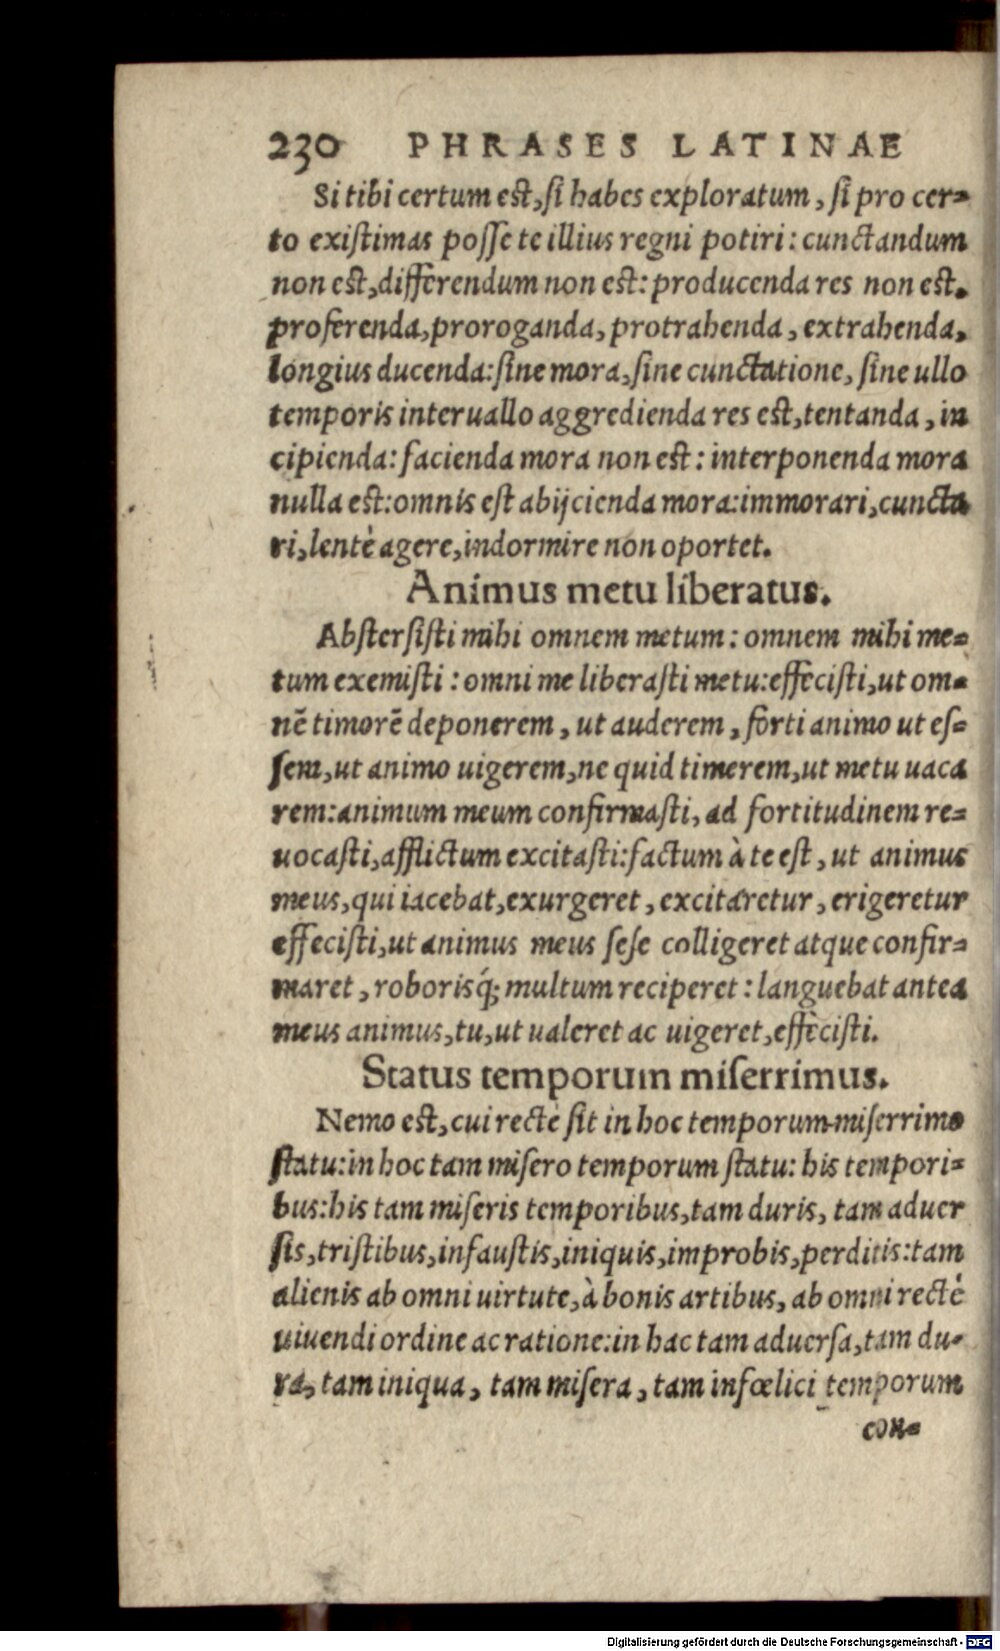 230 PHRASES LATINAE
Si tibi certum est, si habes exploratum, si pro cer-
to existimas posse te illius regni potiri: cunctandum
non est, differendum non est: producenda res non est.
proferenda, proroganda, protrahenda, extrahenda,
longius ducenda: sine mora, sine cunctatione, sine ullo
temporis interuallo aggredienda res est, tentanda, in
cipienda: facienda mora non est: interponenda mora
nulla est: omnis est abijcienda mora: immorari, cuncta
ri, lentè agere, indormire non oportet.
Animus metu liberatus.
Abstersisti mihi omnem metum: omnem mihi me-
tum exemisti: omni me liberasti metu: effecisti, ut om-
nē timorē deponerem, ut auderem, forti animo ut es-
sem, ut animo uigerem, ne quid timerem, ut metu uaca
rem: animum meum confirmasti, ad fortitudinem re-
uocasti, afflictum excitasti: factum à te est, ut animus
meus, qui iacebat, exurgeret, excitaretur, erigeretur
effecisti, ut animus meus sese colligeret atque confir-
maret, roborisq́; multum reciperet: languebat antea
meus animus, tu, ut ualeret ac uigeret, effecisti.
Status temporum miserrimus.
Nemo est, cui rectè sit in hoc temporum miserrimo
statu: in hoc tam misero temporum statu: his tempori-
bus: his tam miseris temporibus, tam duris, tam aduer
sis, tristibus, infaustis, iniquis, improbis, perditis: tam
alienis ab omni uirtute, à bonis artibus, ab omni rectè
uiuendi ordine ac ratione: in hac tam aduersa, tam du-
ra, tam iniqua, tam misera, tam infœlici temporum
con-
Digitalisierung gefördert durch die Deutsche Forschungsgemeinschaft - DFG